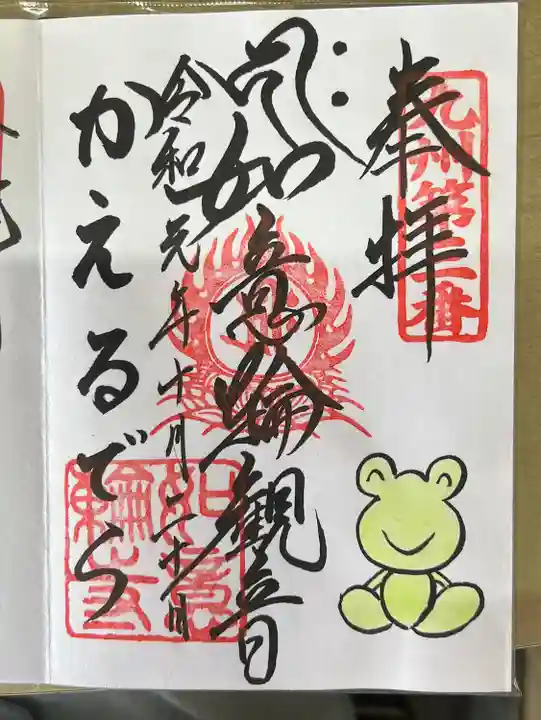 九州第三番
奉拝
如意輪観音
令和元年十月二十
かえるでら
如意
輪寺